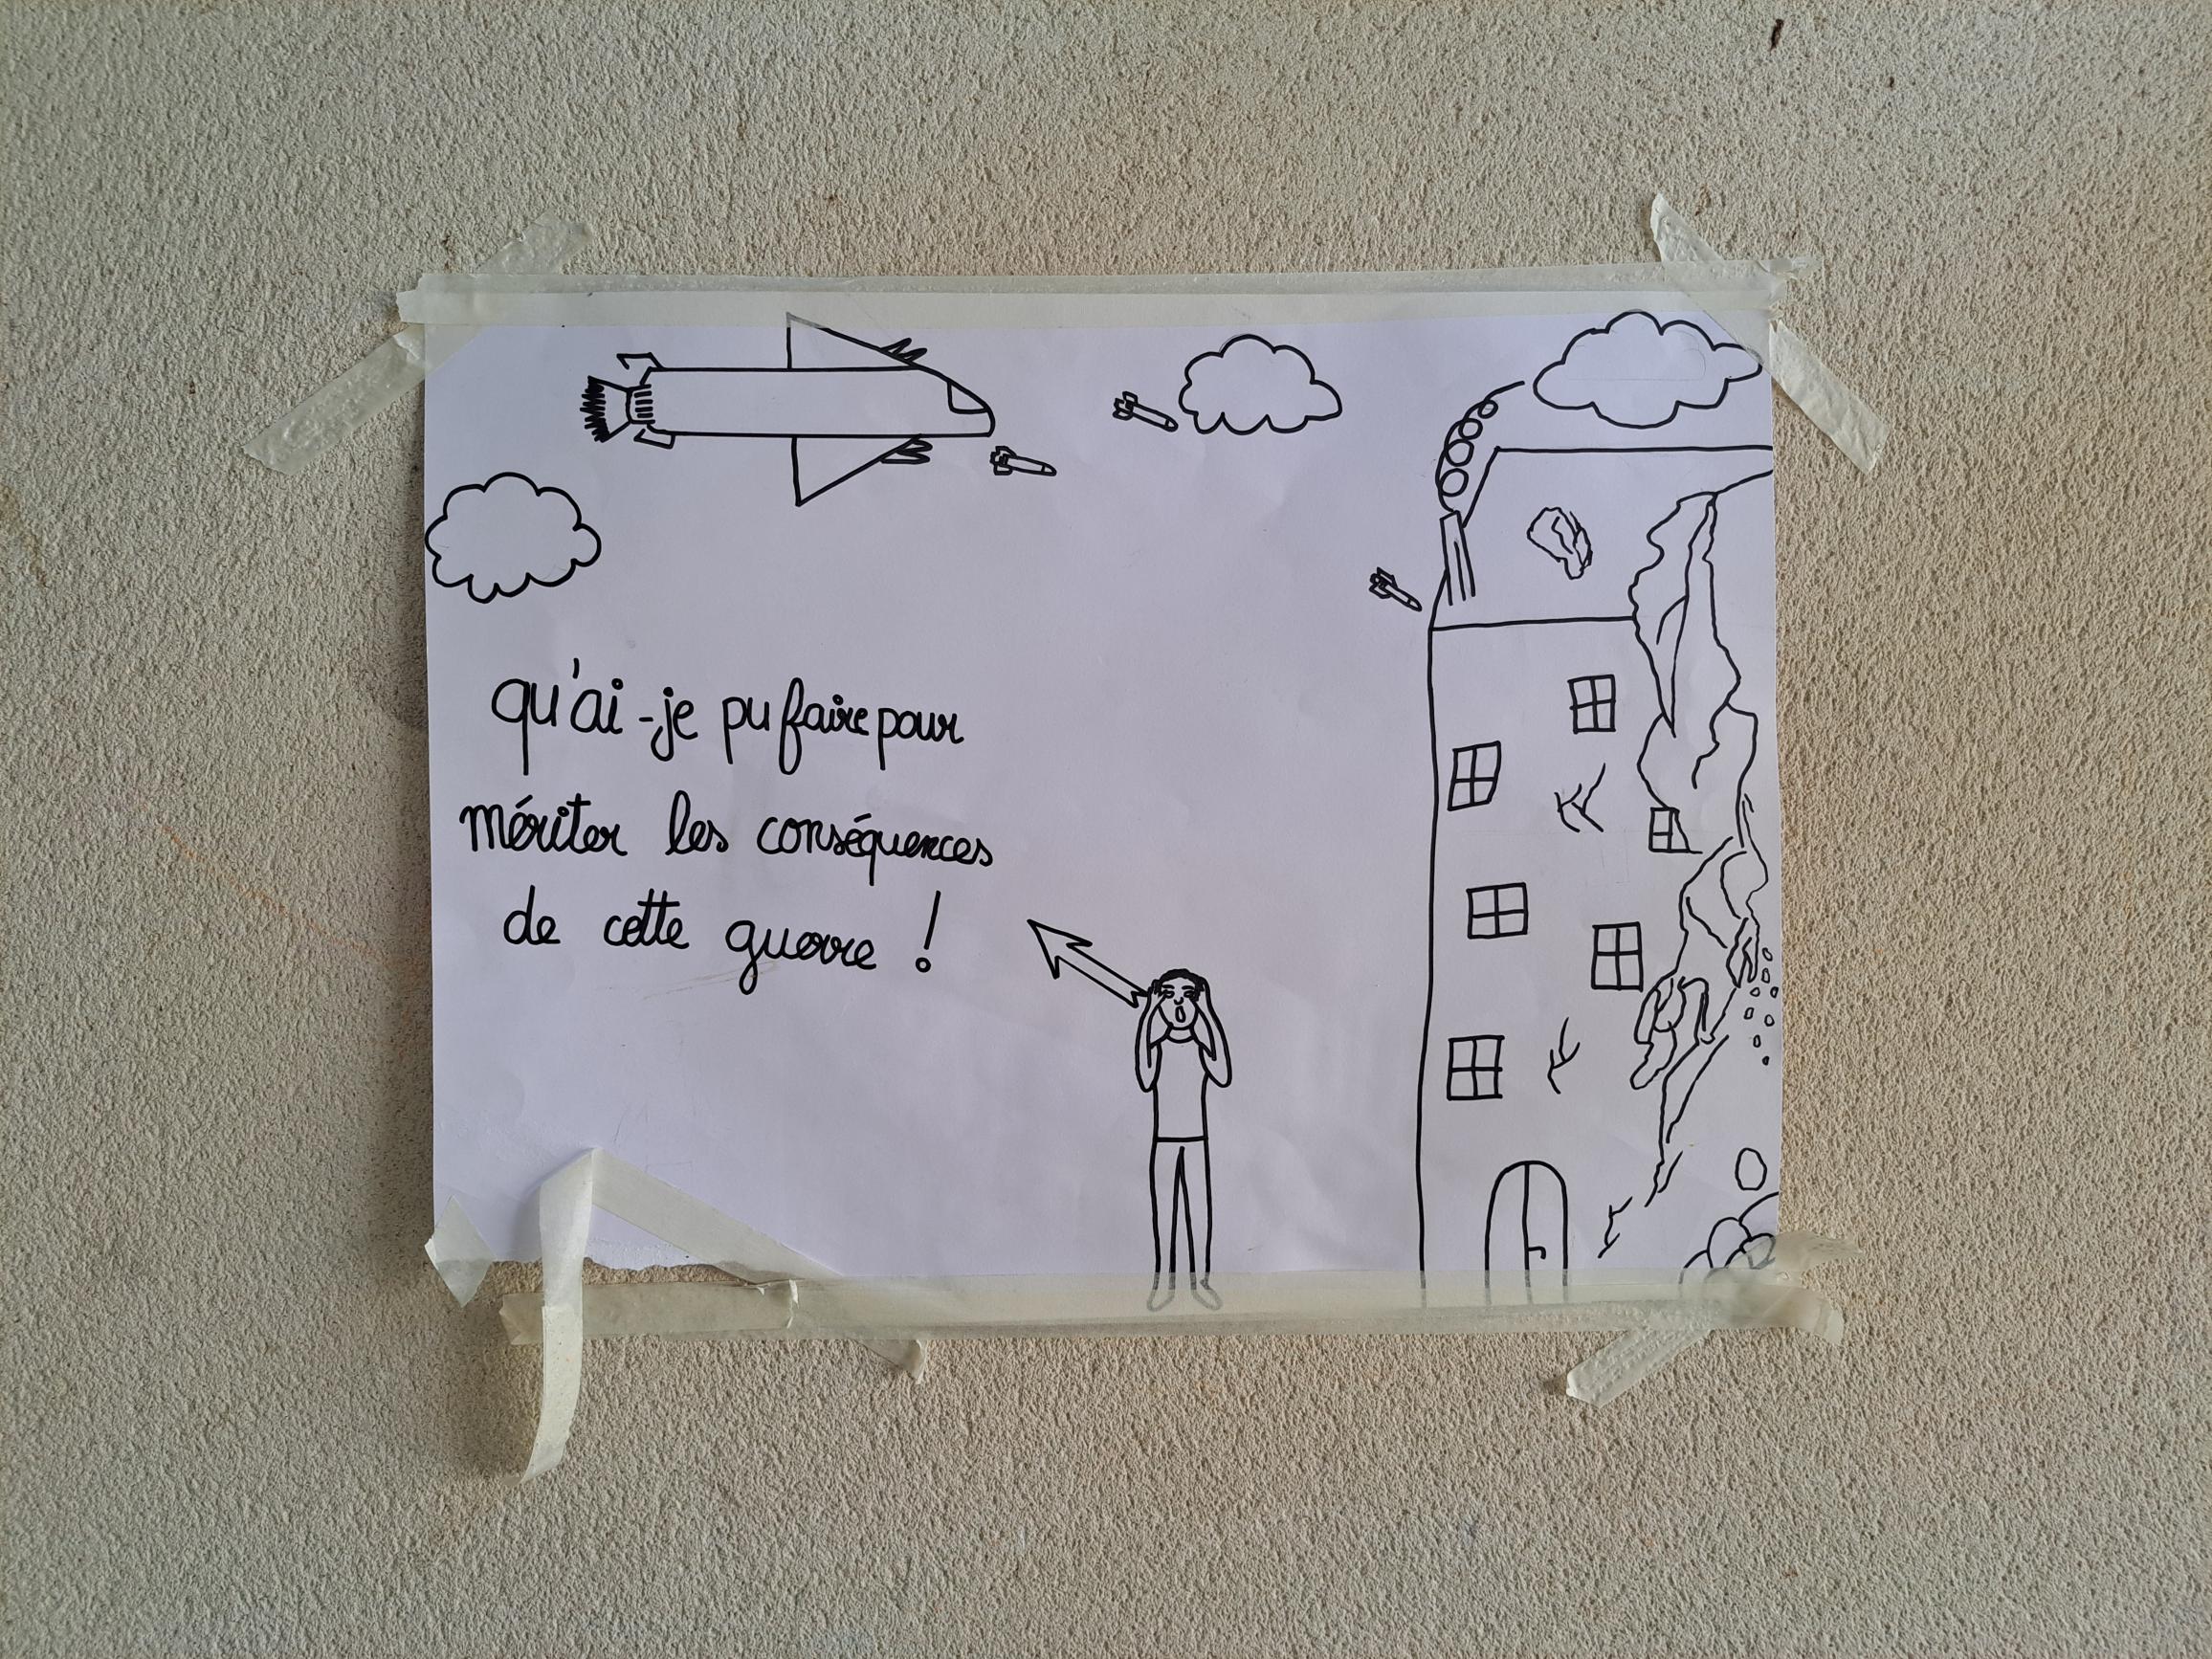 qu'ai-je pu faire pour
mériter les conséquences
de cette guerre !